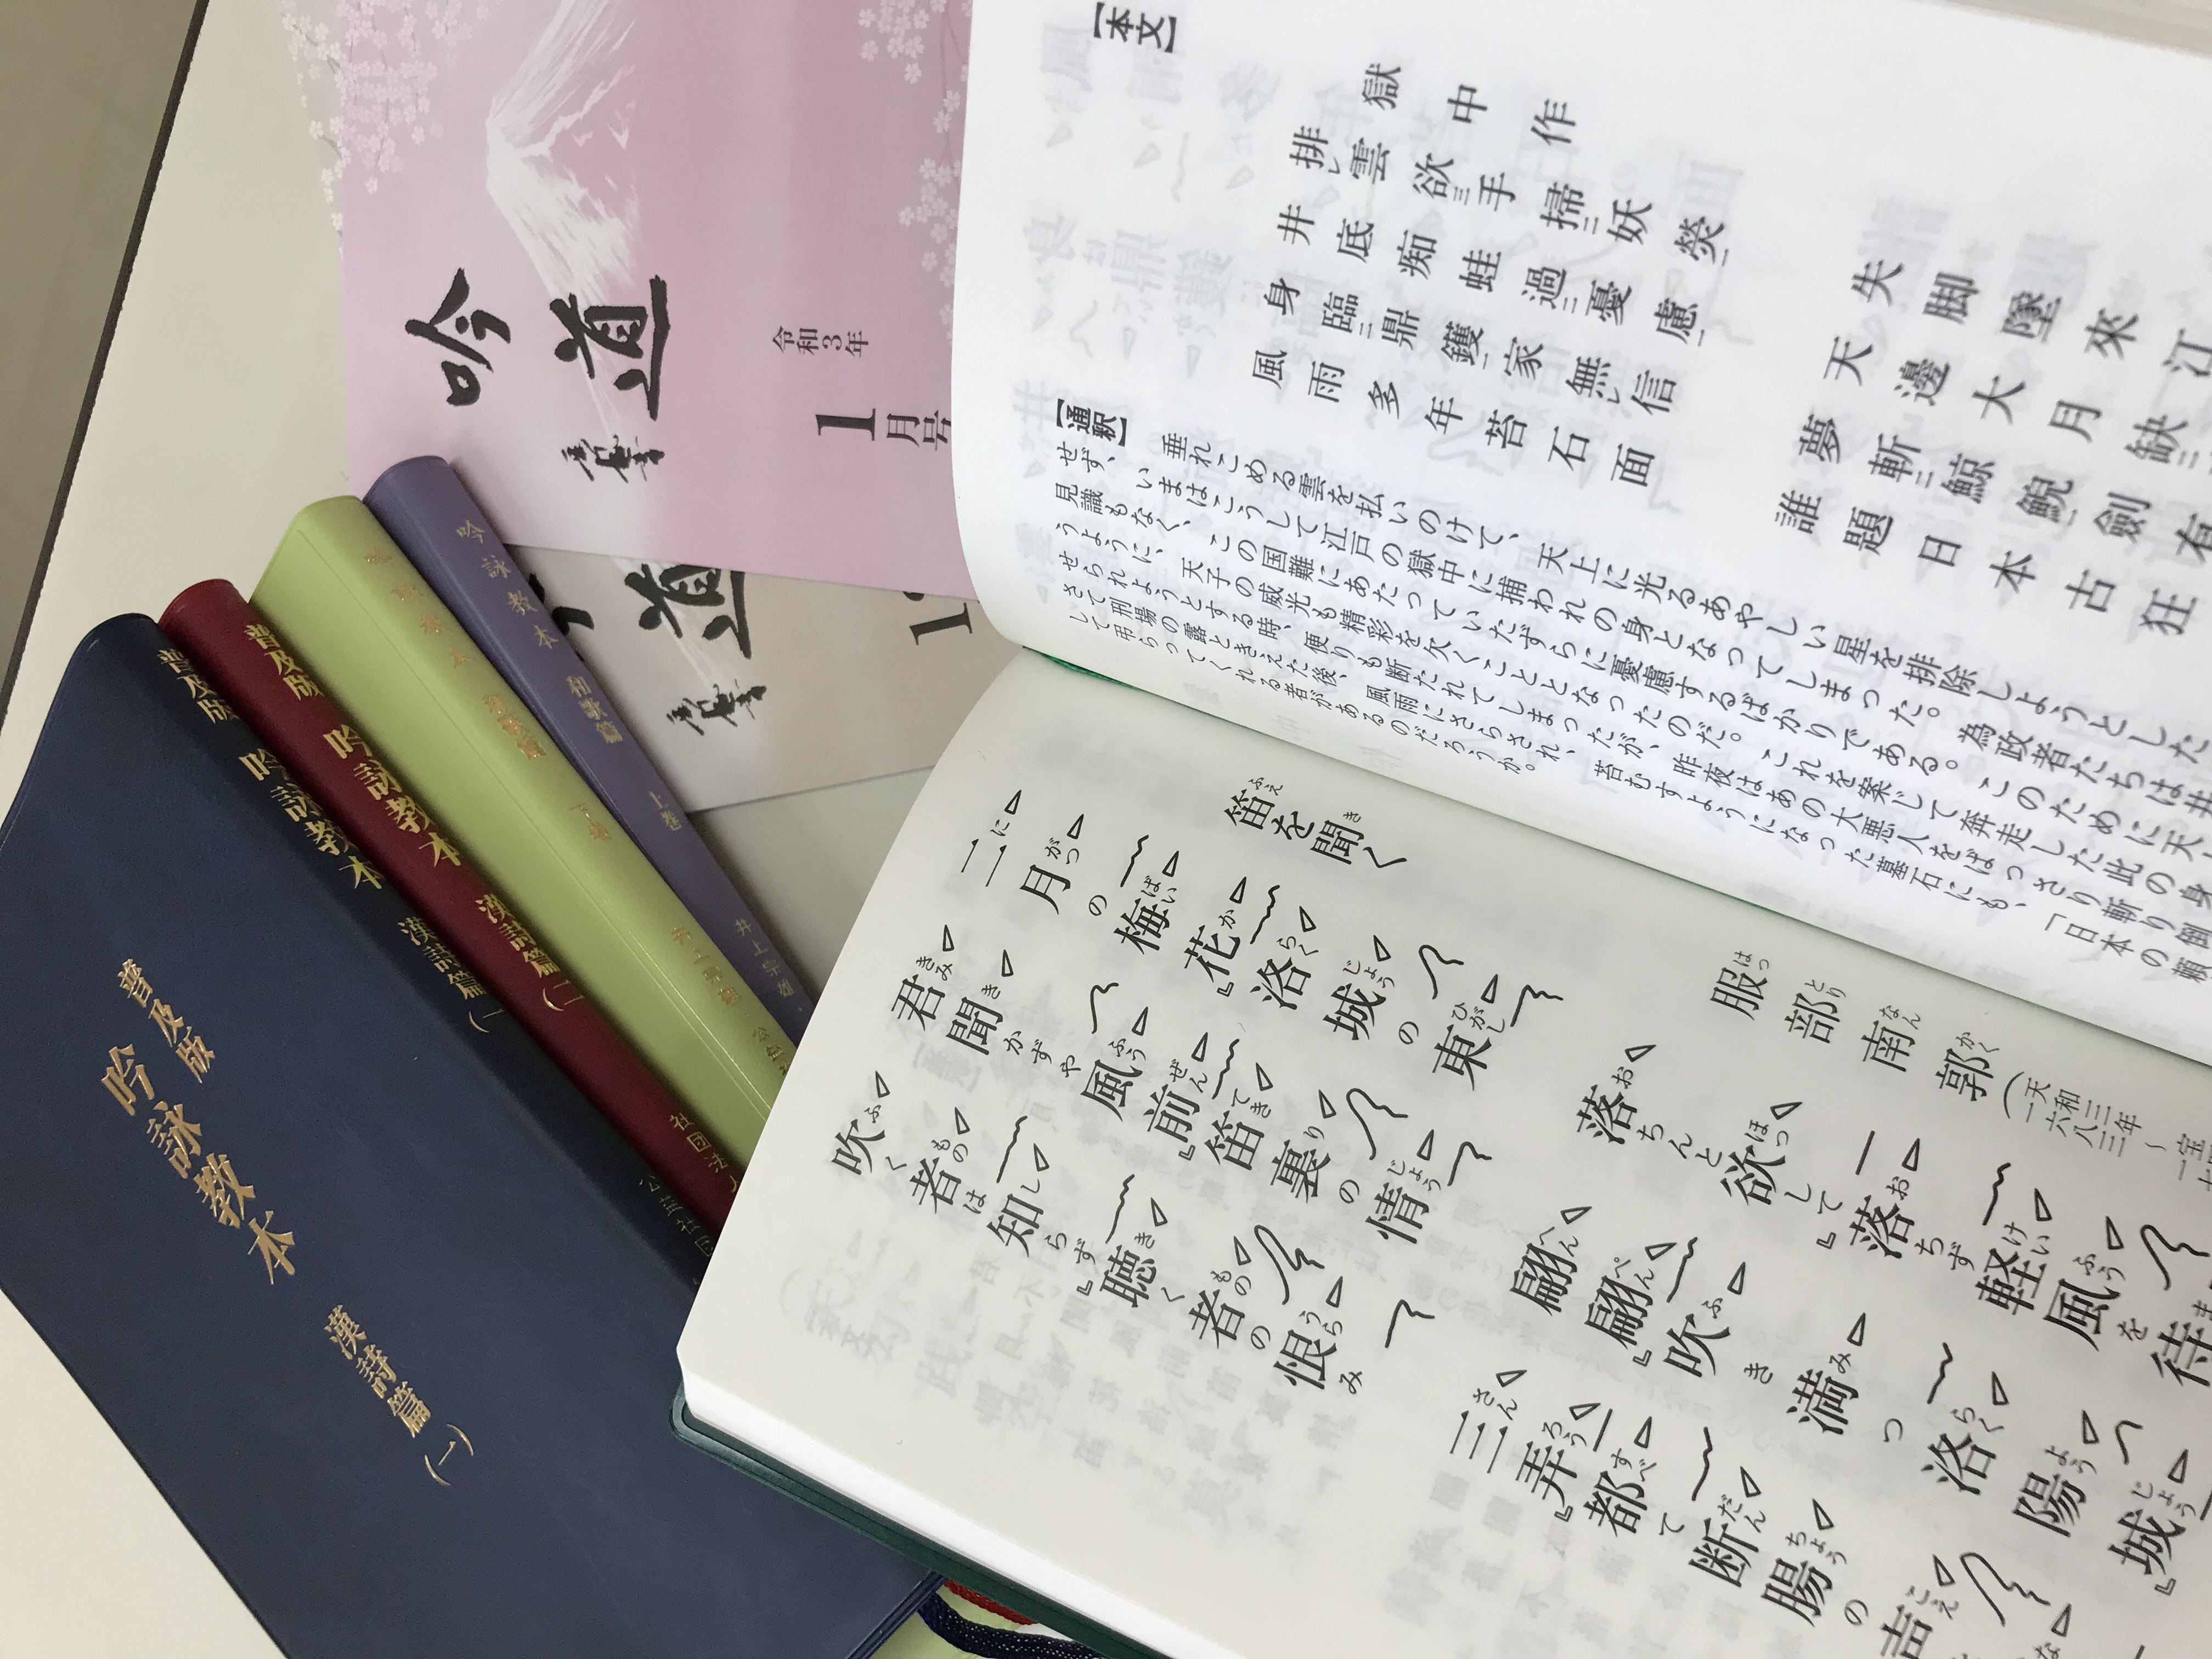 吟道
令和3年
1月号
吟道
普及版 吟詠教本 漢詩篇(一)
普及版
吟詠教本 漢詩篇(一)
普及版 吟詠教本 漢詩篇(二) 社団法
吟詠教本 和歌篇 上巻
【本文】
獄中作
排雲欲手掃妖熒 失脚墜來江
井底痴蛙過憂慮 天邊大月缺
身臨鼎鑊家無信 夢斬鯨鯢劍有
風雨多年苔石面 誰題日本古狂
【通釈】
垂れこめる雲を払いのけて、天上に光るあやしい星を排除しようとした
せず、いまはこうして江戸の獄中に捕われの身となってしまった。為政者たちは井
見識もなく、この国難にあたっていたずらに憂慮するばかりである。このために天
うように、天子の威光も精彩を欠くこととなったのだ。これを案じて奔走した此の身
せられようとする時、便りも断たれてしまったが、昨夜はあの大悪人をばっさり斬り倒
さて刑場の露ときえた後、風雨にさらされ、苔むすようになった墓石にも、「日本の頼
して弔らってくれる者があるのだろうか。
笛を聞く 服部南郭(天和三年～宝
一六八三～一七
二月の梅花『洛城の東 落ちんと欲して『落ちず軽風を待
君聞かずや風前『笛裏の情 翩翩『吹き満つ洛陽城『
吹く者は知らず『聴く者の恨み 三弄『都て断腸の声